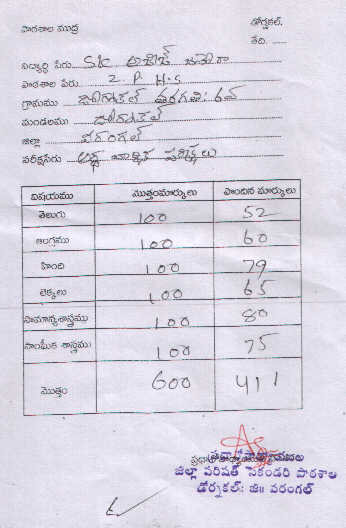 పాఠశాల ముద్ర
డోర్నకల్.
తేది. ......
విద్యార్థి పేరు SK
పాఠశాల పేరు Z. P. H. S
గ్రామము డోర్నకల్ తరగతి: 8వ
మండలము డోర్నకల్
జిల్లా వరంగల్
పరీక్షపేరు అర్ధ వార్షిక పరీక్షలు
విషయము మొత్తంమార్కులు పొందిన మార్కులు
తెలుగు 100 52
ఆంగ్లము 100 60
హింది 100 79
లెక్కలు 100 65
సామాన్యశాస్త్రము 100 80
సాంఘీక శాస్త్రము 100 75
మొత్తం 600 411
జిల్లా పరిషత్ సెకండరి పాఠశాల
డోర్నకల్: జి॥ వరంగల్